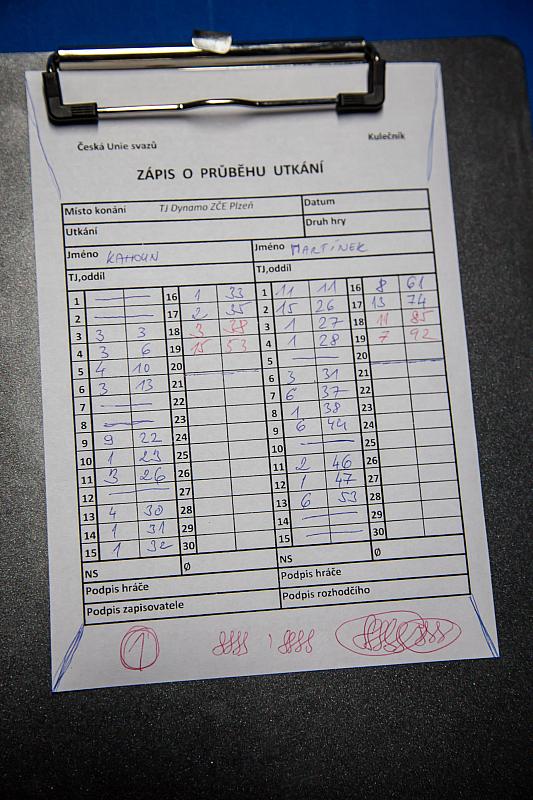 Česká Unie svazů Kulečník
ZÁPIS O PRŮBĚHU UTKÁNÍ
Místo konání TJ Dynamo ZČE Plzeň Datum
Utkání Druh hry
Jméno KAHOUN Jméno MARTÍNEK
TJ,oddíl TJ,oddíl
1 — — 16 1 33 1 11 11 16 8 61
2 — — 17 2 35 2 15 26 17 13 74
3 3 3 18 3 38 3 1 27 18 11 85
4 3 6 19 15 53 4 1 28 19 7 92
5 4 10 20 — 5 — 20 —
6 3 13 21 6 3 31 21
7 — 22 7 6 37 22
8 — 23 8 1 38 23
9 9 22 24 9 6 44 24
10 1 23 25 10 — 25
11 3 26 26 11 2 46 26
12 — 27 12 1 47 27
13 4 30 28 13 6 53 28
14 1 31 29 14 — 29
15 1 32 30 15 — 30
NS Ø NS Ø
Podpis hráče Podpis hráče
Podpis zapisovatele Podpis rozhodčího
1